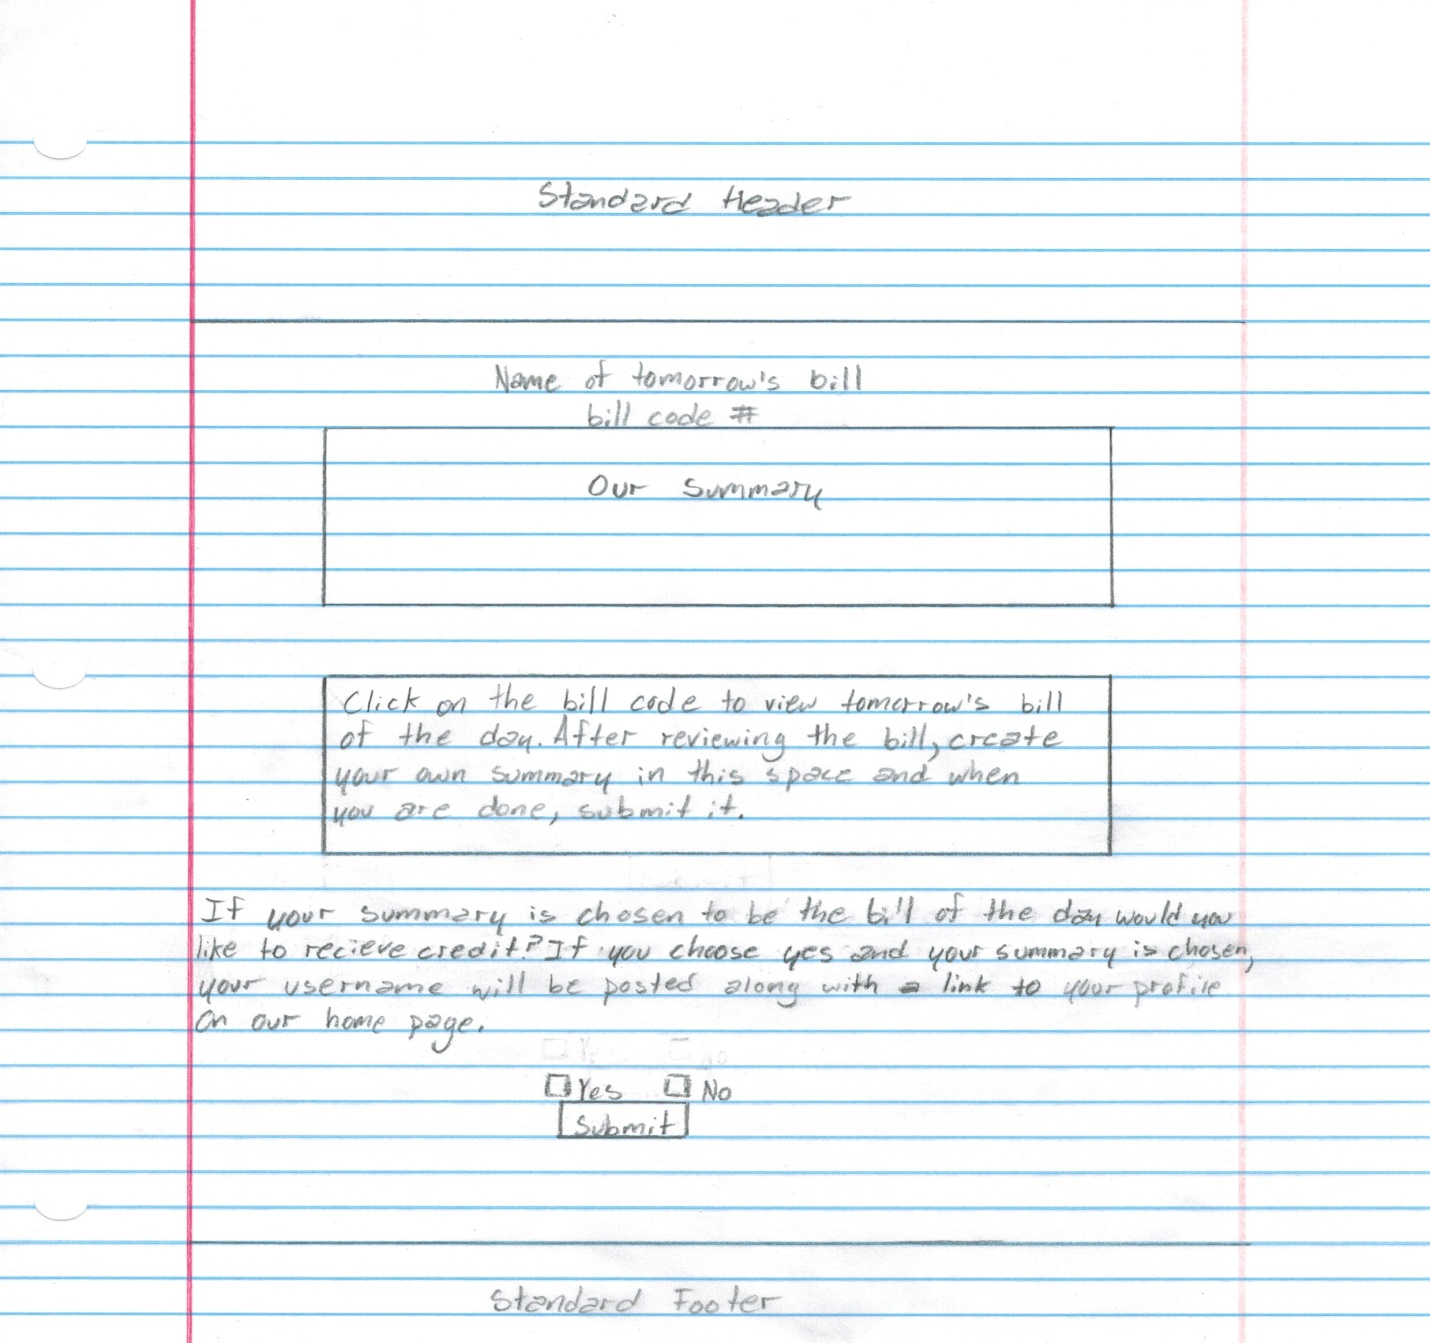 Standard Header
Name of tomorrow's bill
bill code #
Our Summary
Click on the bill code to view tomorrow's bill
of the day. After reviewing the bill, create
your own summary in this space and when
you are done, submit it.
If your summary is chosen to be the bill of the day would you
like to recieve credit? If you choose yes and your summary is chosen,
your username will be posted along with a link to your profile
on our home page.
Yes No
Submit
Standard Footer